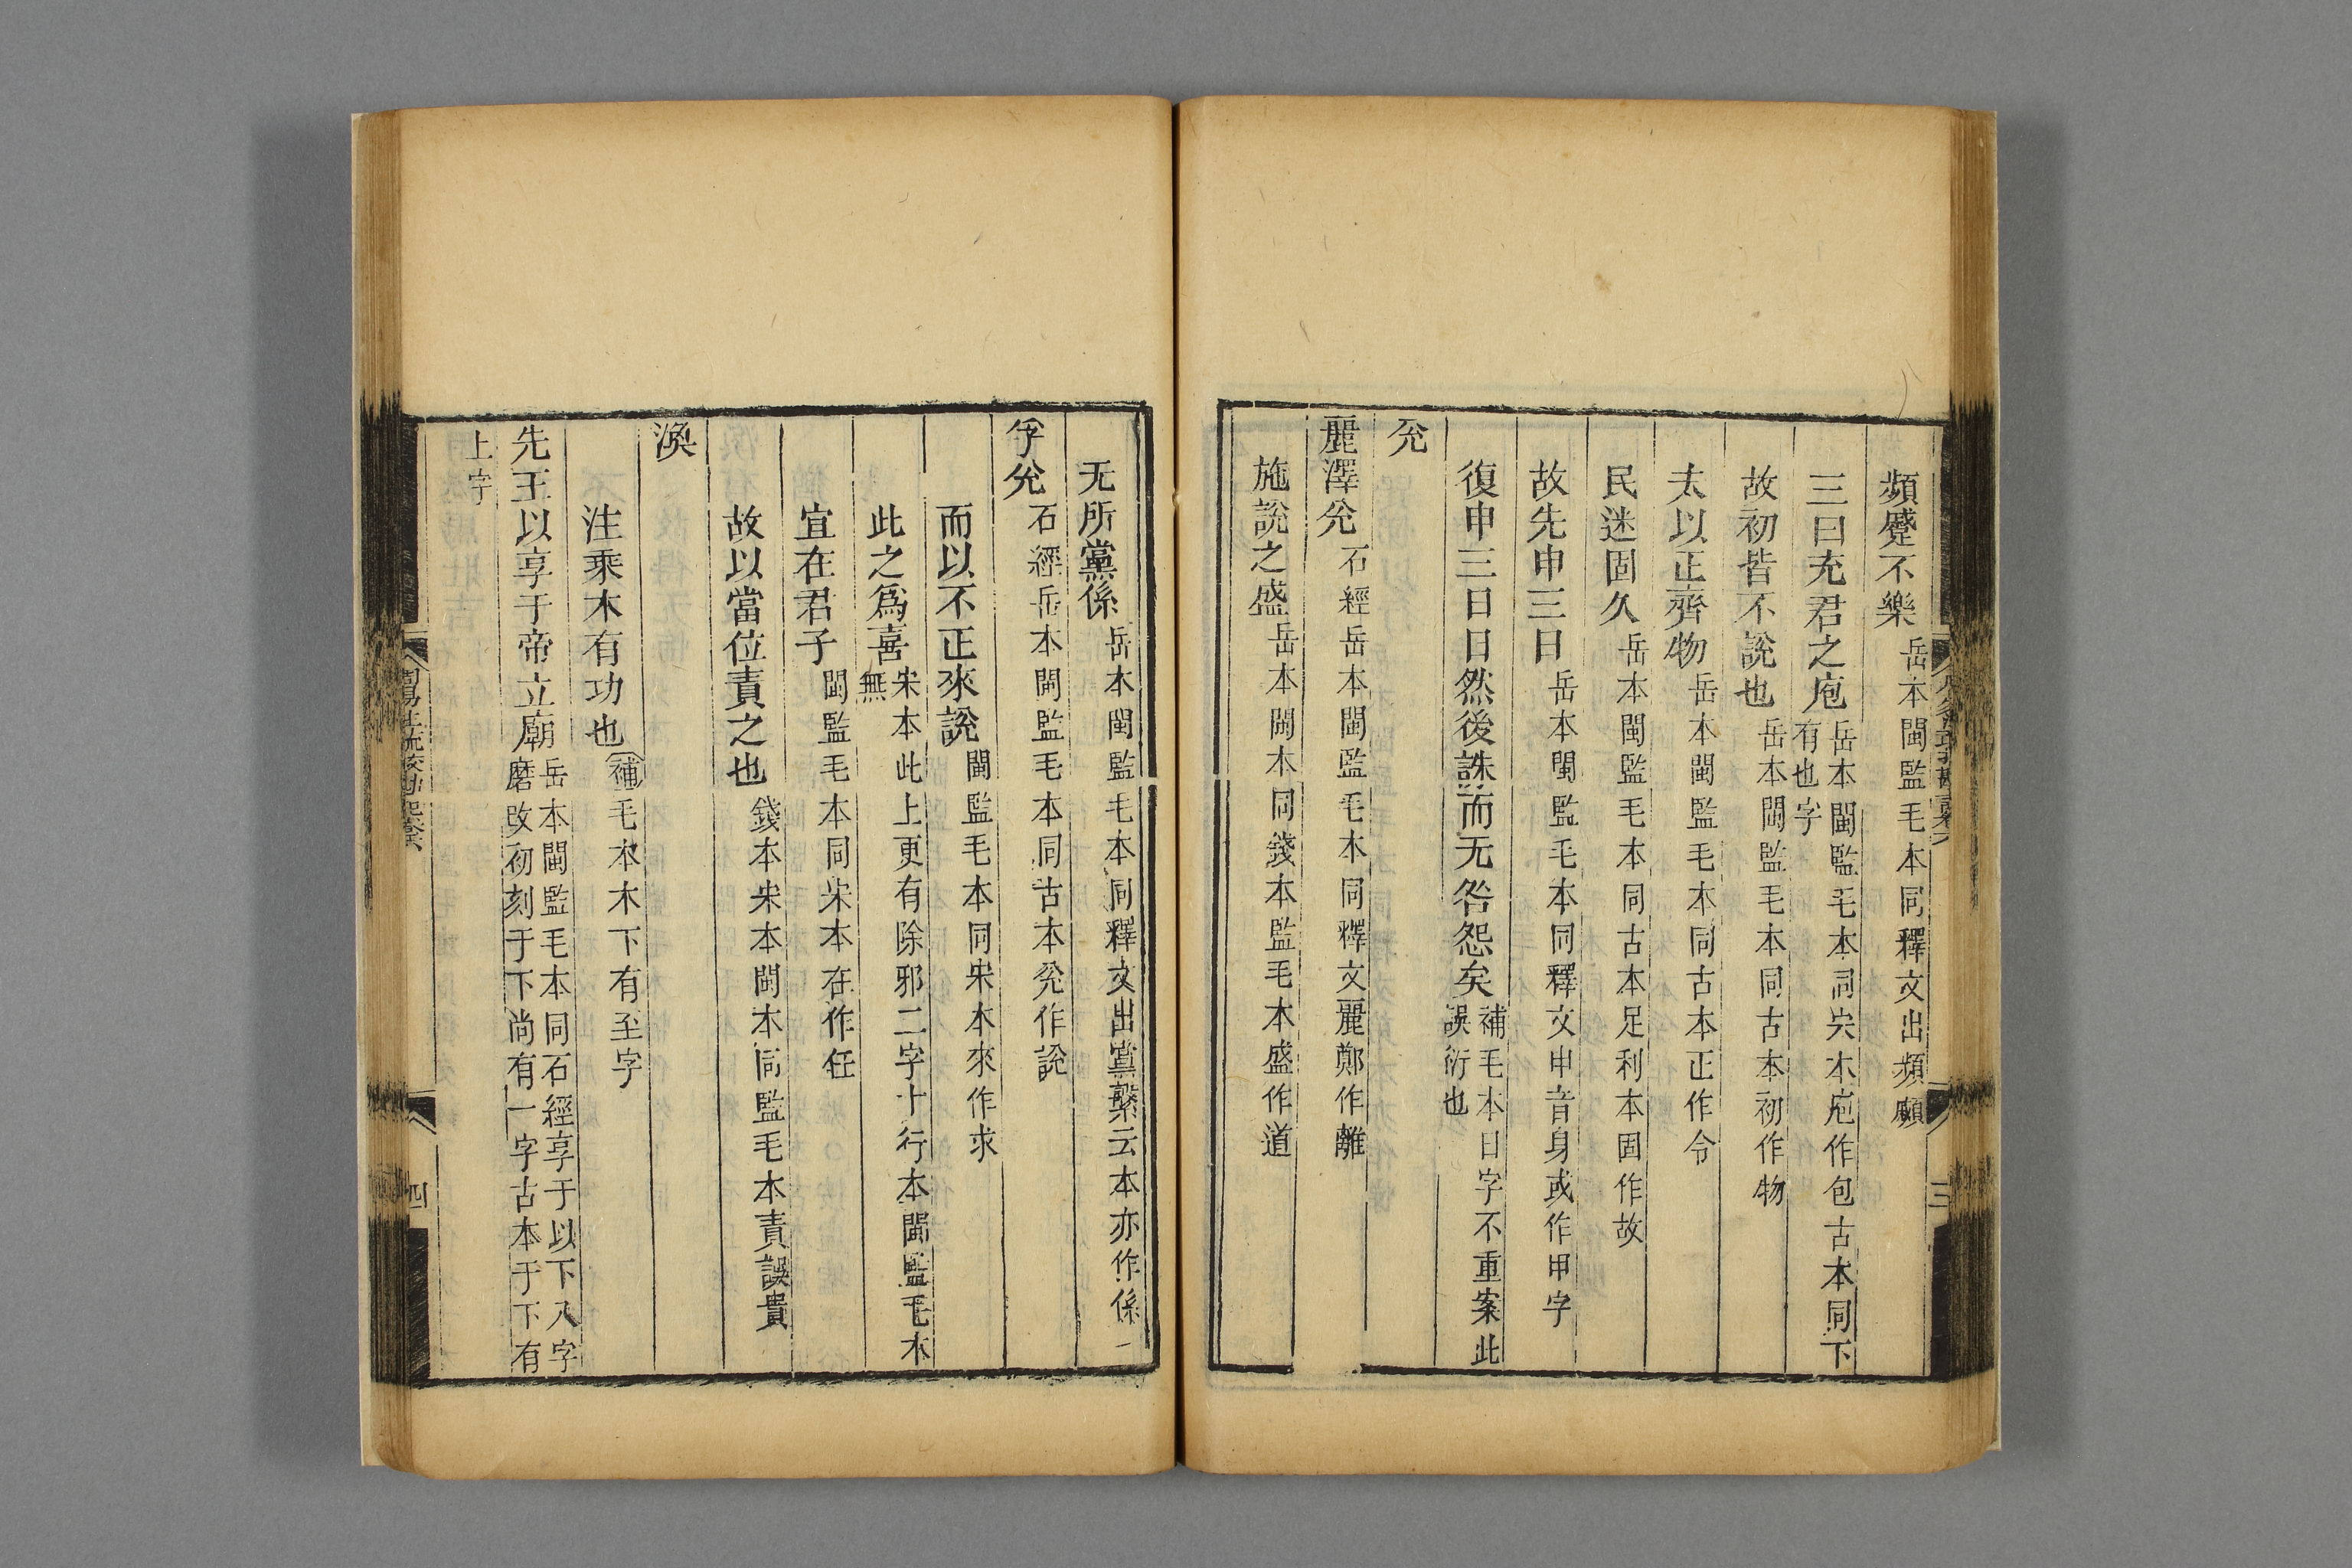 頻蹙不樂岳本閩監毛本同釋文出頻顣
三曰充君之庖岳本閩監毛本同宋本庖作包古本同下
有也字
故初皆不說也岳本閩監毛本同古本初作物
夫以正齊物岳本閩監毛本同古本正作令
民迷固久岳本閩監毛本同古本足利本固作故
故先申三日岳本閩監毛本同釋文申音身或作甲字
復申三日日然後誅而无咎怨矣補毛本日字不重案此
誤衍也
兌
麗澤兌石經岳本閩監毛本同釋文麗鄭作離
施說之盛岳本閩本同錢本監毛本盛作道
三
无所黨係岳本閩監毛本同釋文出黨繫云本亦作係
孚兌石經岳本閩監毛本同古本兌作說
而以不正來說閩監毛本同宋本來作求
此之爲喜宋本此上更有除邪二字十行本閩監毛本
無
宜在君子閩監毛本同宋本在作任
故以當位責之也錢本宋本閩本同監毛本責誤貴
渙
注乘木有功也補毛本木下有至字
先王以享于帝立廟岳本閩監毛本同石經享于以下八字
磨改初刻于下尚有一字古本于下有
上字
周易注疏校勘記卷六
四